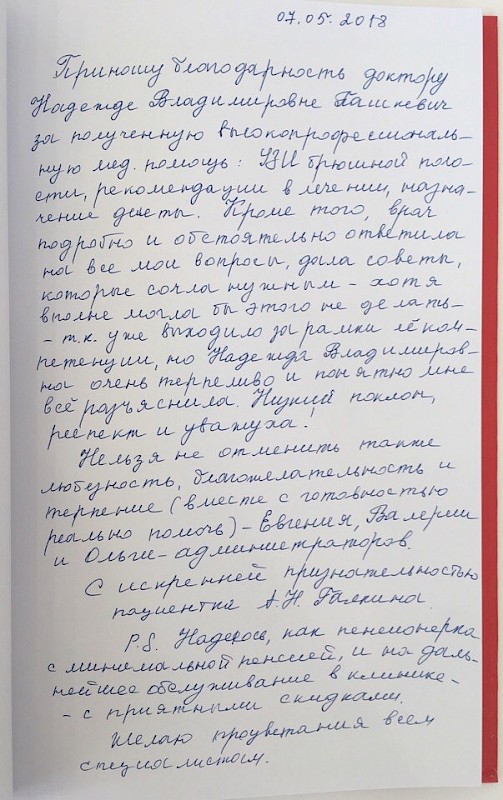 07.05.2018
Приношу благодарность доктору
Надежде Владимировне Пашкевич
за полученную высокопрофессиональ-
ную мед. помощь: УЗИ брюшной поло-
сти, рекомендации в лечении, назна-
чение диеты. Кроме того, врач
подробно и обстоятельно ответила
на все мои вопросы, дала советы,
которые сочла нужным – хотя
вполне могла бы этого не делать –
– т.к. уже выходило за рамки её ком-
петенции, но Надежда Владимиров-
на очень терпеливо и понятно мне
всё разъяснила. Низкий поклон,
респект и уважуха!
Нельзя не отменить также
любезность, благожелательность и
терпение (вместе с готовностью
реально помочь) – Евгения, Валерии
и Ольги – администраторов.
С искренней признательностью
пациентка А.Н. Галкина.
P.S. Надеюсь, как пенсионерка
с минимальной пенсией, и на даль-
нейшее обслуживание в клинике –
– с приятными скидками.
Желаю процветания всем
специалистам.